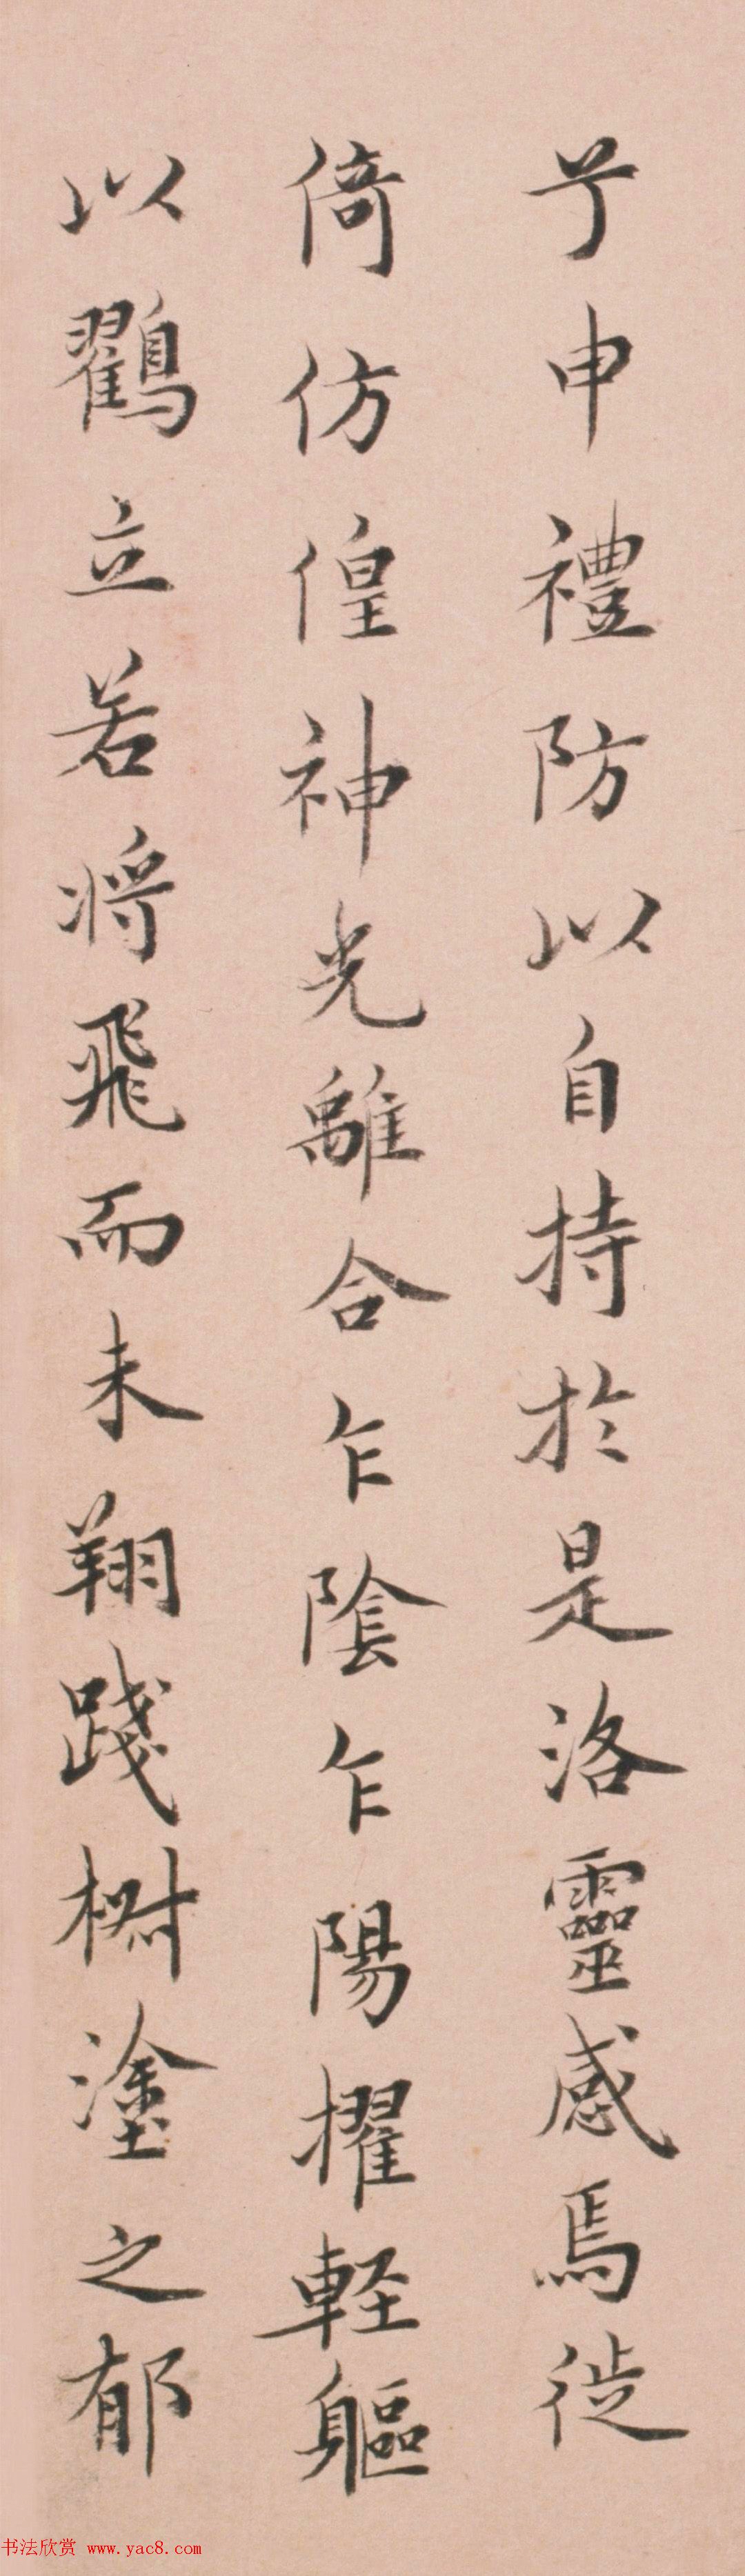 兮申禮防以自持於是洛靈感焉徙
倚仿偟神光離合乍陰乍陽擢軽軀
以鸖立若将飛而未翔踐椒塗之郁
书法欣赏 www.yac8.com